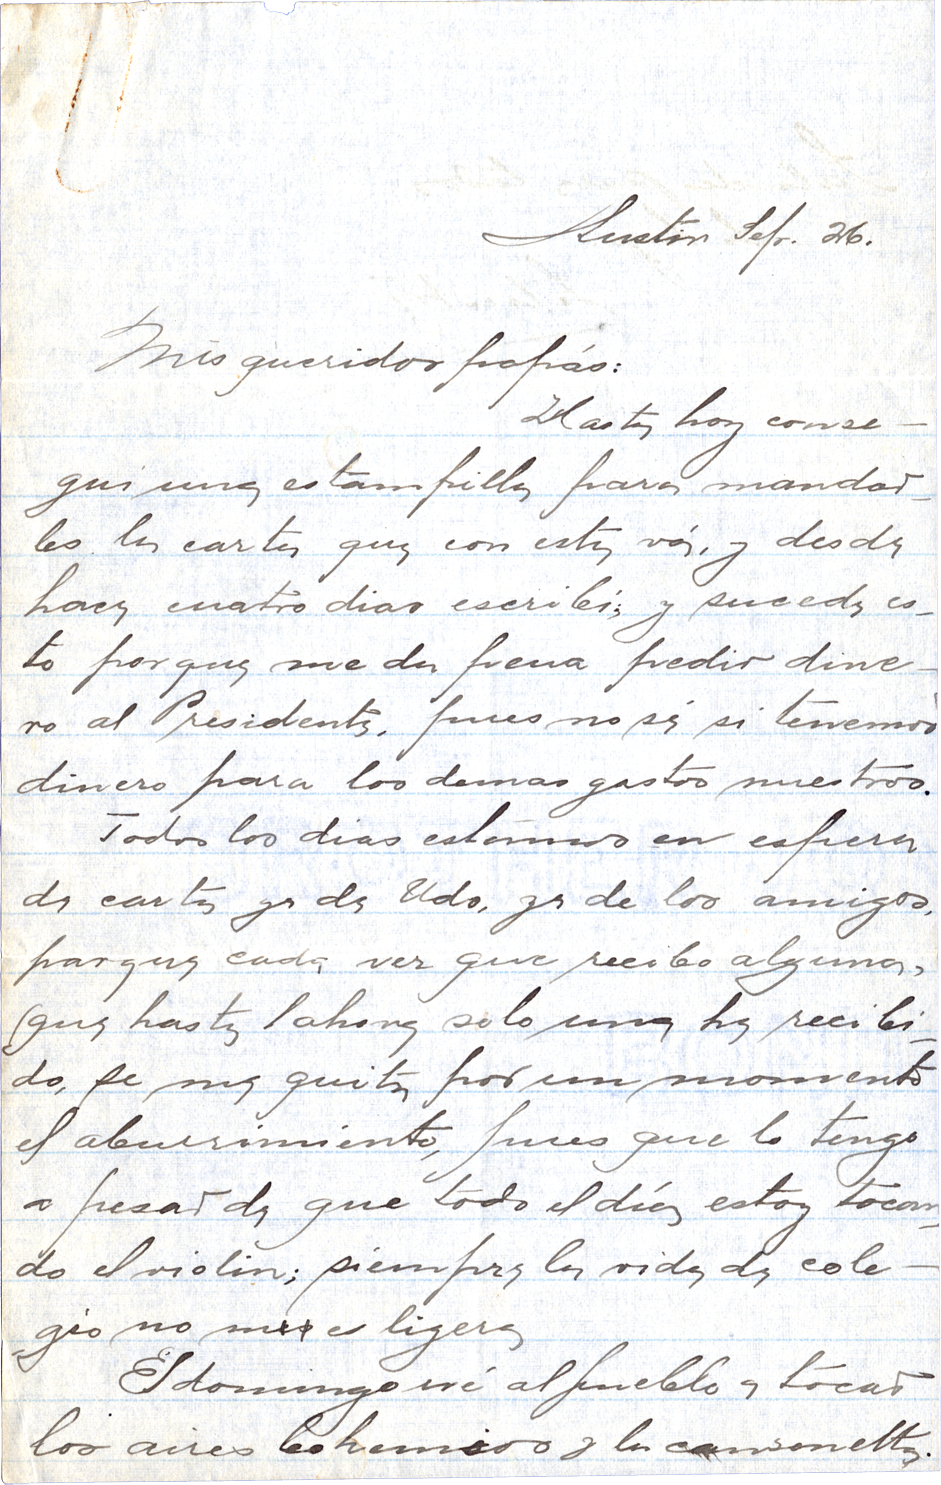 Austin Sep. 26.
Mis queridos papás:
Hasta hoy conse-
guí una estampilla para mandar-
les la carta que con esta vá, y desde
hace cuatro dias escribí; y sucede es-
to porque me da pena pedir dine-
ro al Presidente, pues no sé si tenemos
dinero para los demas gastos nuestros.
Todos los dias estamos en espera
de carta ya de Uds, ya de los amigos,
porque cada vez que recibo alguna,
(que hasta ahora solo una he recibi-
do, se me quita por un momento
el aburrimiento, pues que lo tengo
a pesar de que todo el día estoy tocan-
do el violin; siempre la vida de cole-
gio no me es ligera
El domingo al pueblo a tocar
los aires bohemios y la canzonetta.